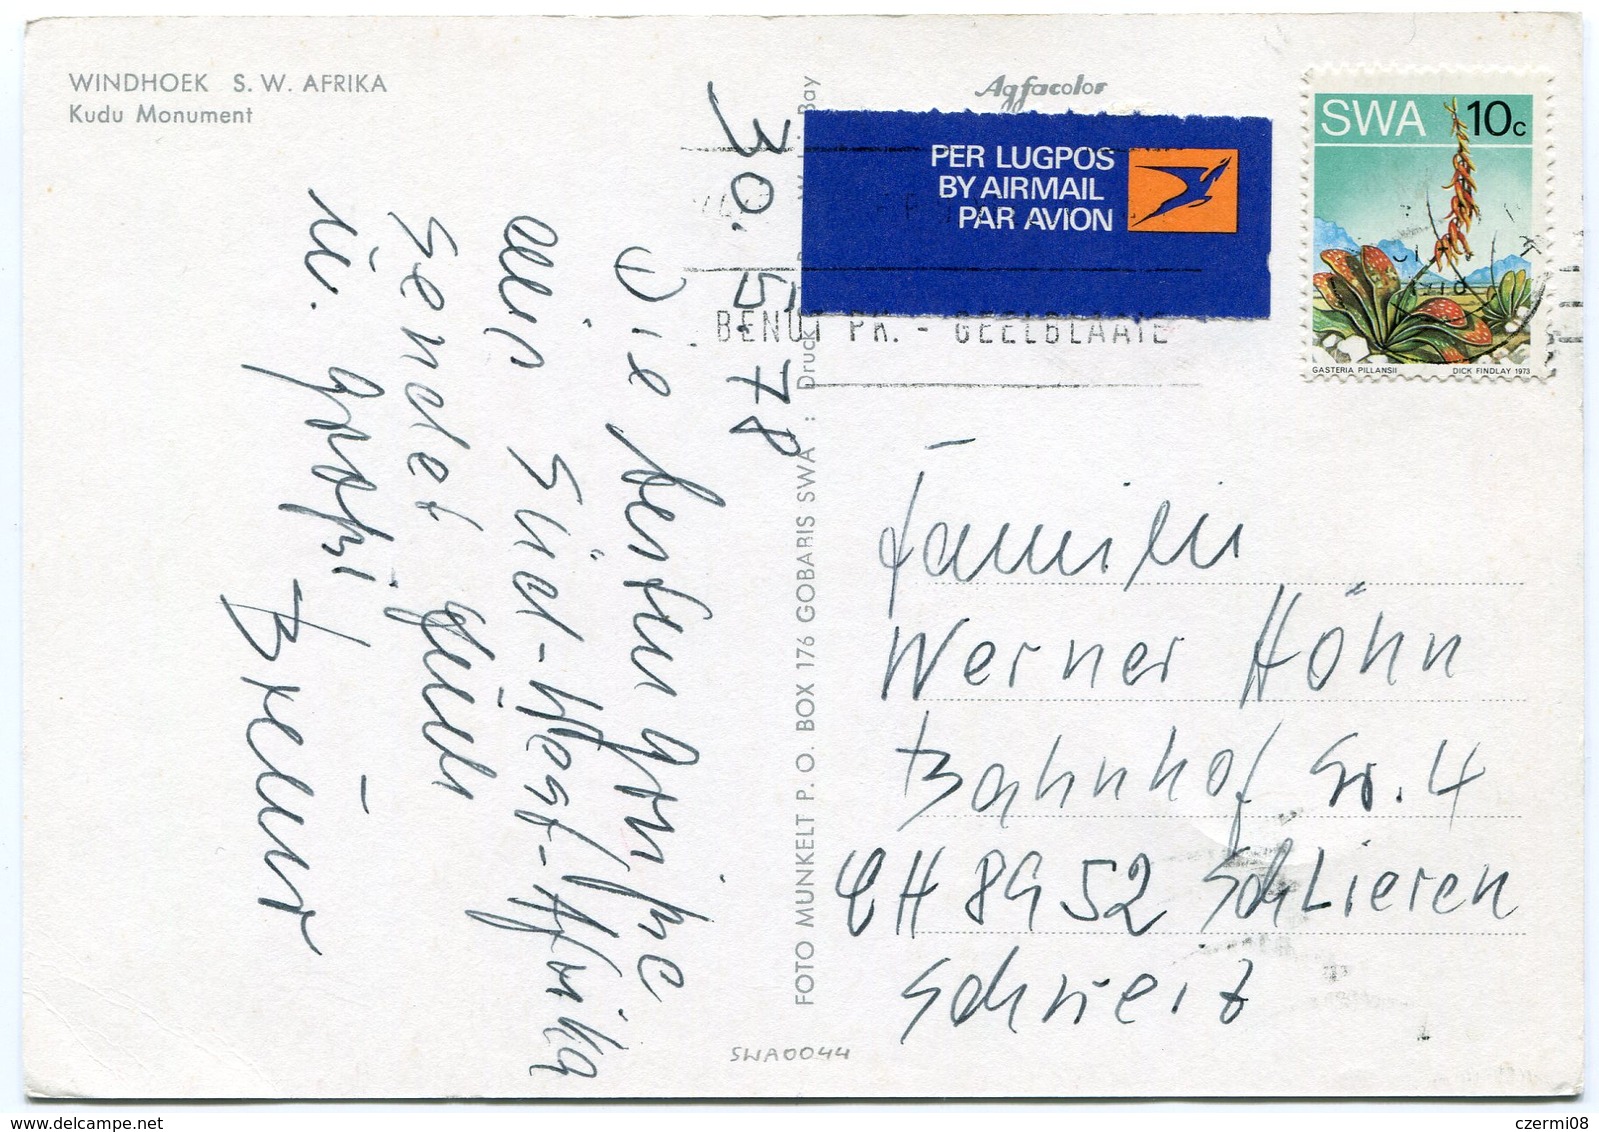 WINDHOEK S. W. AFRIKA
Kudu Monument
30. 5. 78
Die besten Grüße
aus Süd-West-Afrika
sendet
u.
Agfacolor
PER LUGPOS
BY AIRMAIL
PAR AVION
SWA 10c
GASTERIA PILLANSII DICK FINDLAY 1973
BENUT PK. - GEELBLAAIE
FOTO MUNKELT P. O. BOX 176 GOBABIS SWA : Druck
Bay
Familie
Werner Höhn
Bahnhofstr. 4
CH 8952 Schlieren
Schweiz
SWA0044
czermi08
www.delcampe.net